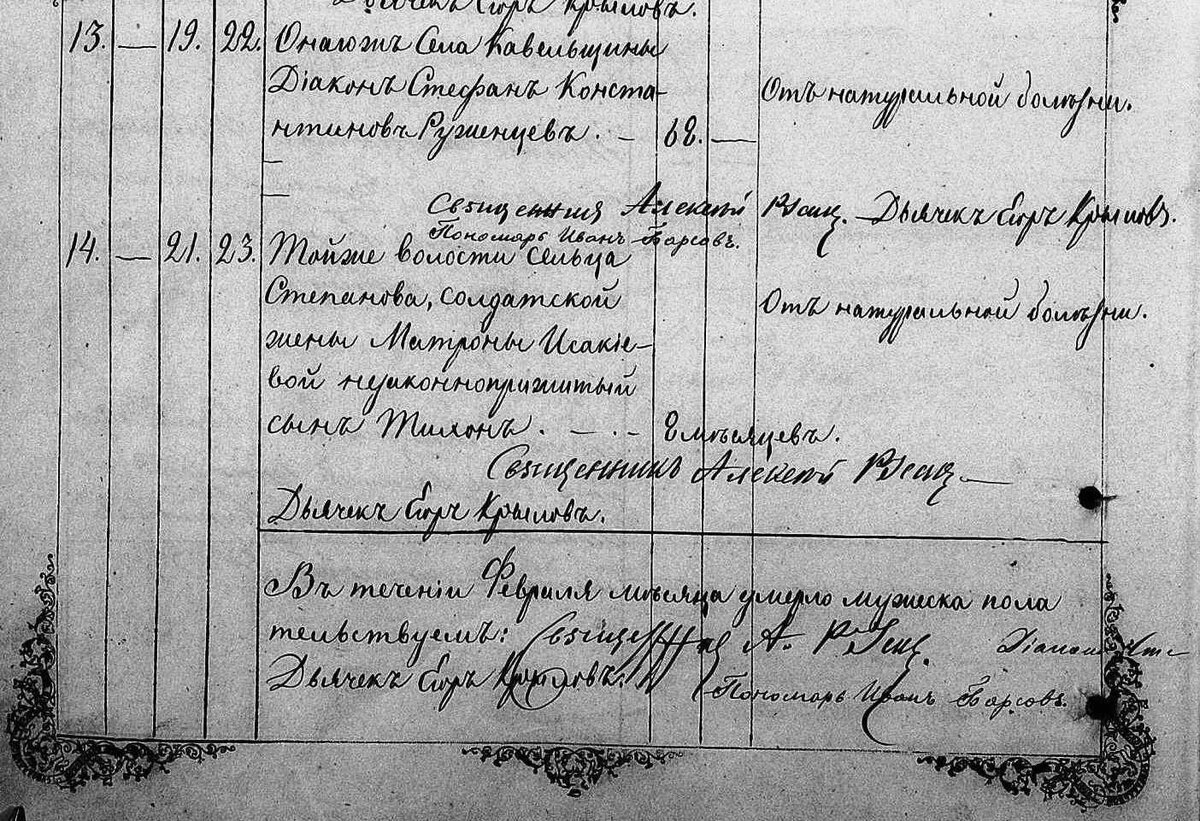 Дьячекъ Егоръ Крыловъ.
13. — 19. 22. Онагожъ Села Кавельщины
Діаконъ Стефанъ Конста-
нтиновъ Руженцевъ. — 68. — Отъ натуральной болѣзни.
Священникъ Алексѣй Дьячекъ Егоръ Крыловъ.
Пономарь Иванъ Барсовъ.
14. — 21. 23. Тойже волости сельца
Степанова, солдатской
жены Матроны Исакіе-
вой незаконноприжитый
сынъ Тихонъ. — 8 мѣсяцевъ. Отъ натуральной болѣзни.
Священникъ Алексѣй
Дьячекъ Егоръ Крыловъ.
Въ теченіи Февраля мѣсяца умерло мужеска пола
тельствуемъ: Священникъ А. Діаконъ
Дьячекъ Егоръ Крыловъ. Пономарь Иванъ Барсовъ.